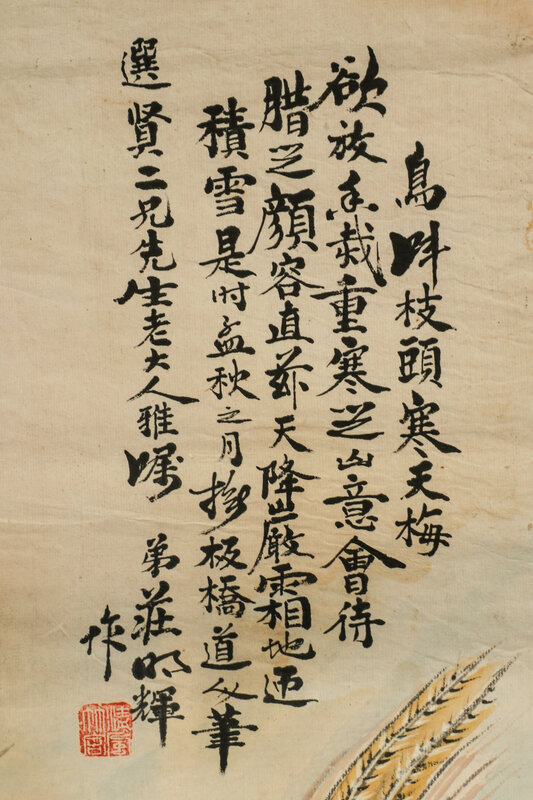 鳥叫枝頭寒天梅
欲放未栽重寒之山意會待
腊之顔容直茲天降山嚴霜相地迊
積雪是时孟秋之月撫板橋道人筆
選賢二兄先生老大人雅嘱
弟莊明輝
作